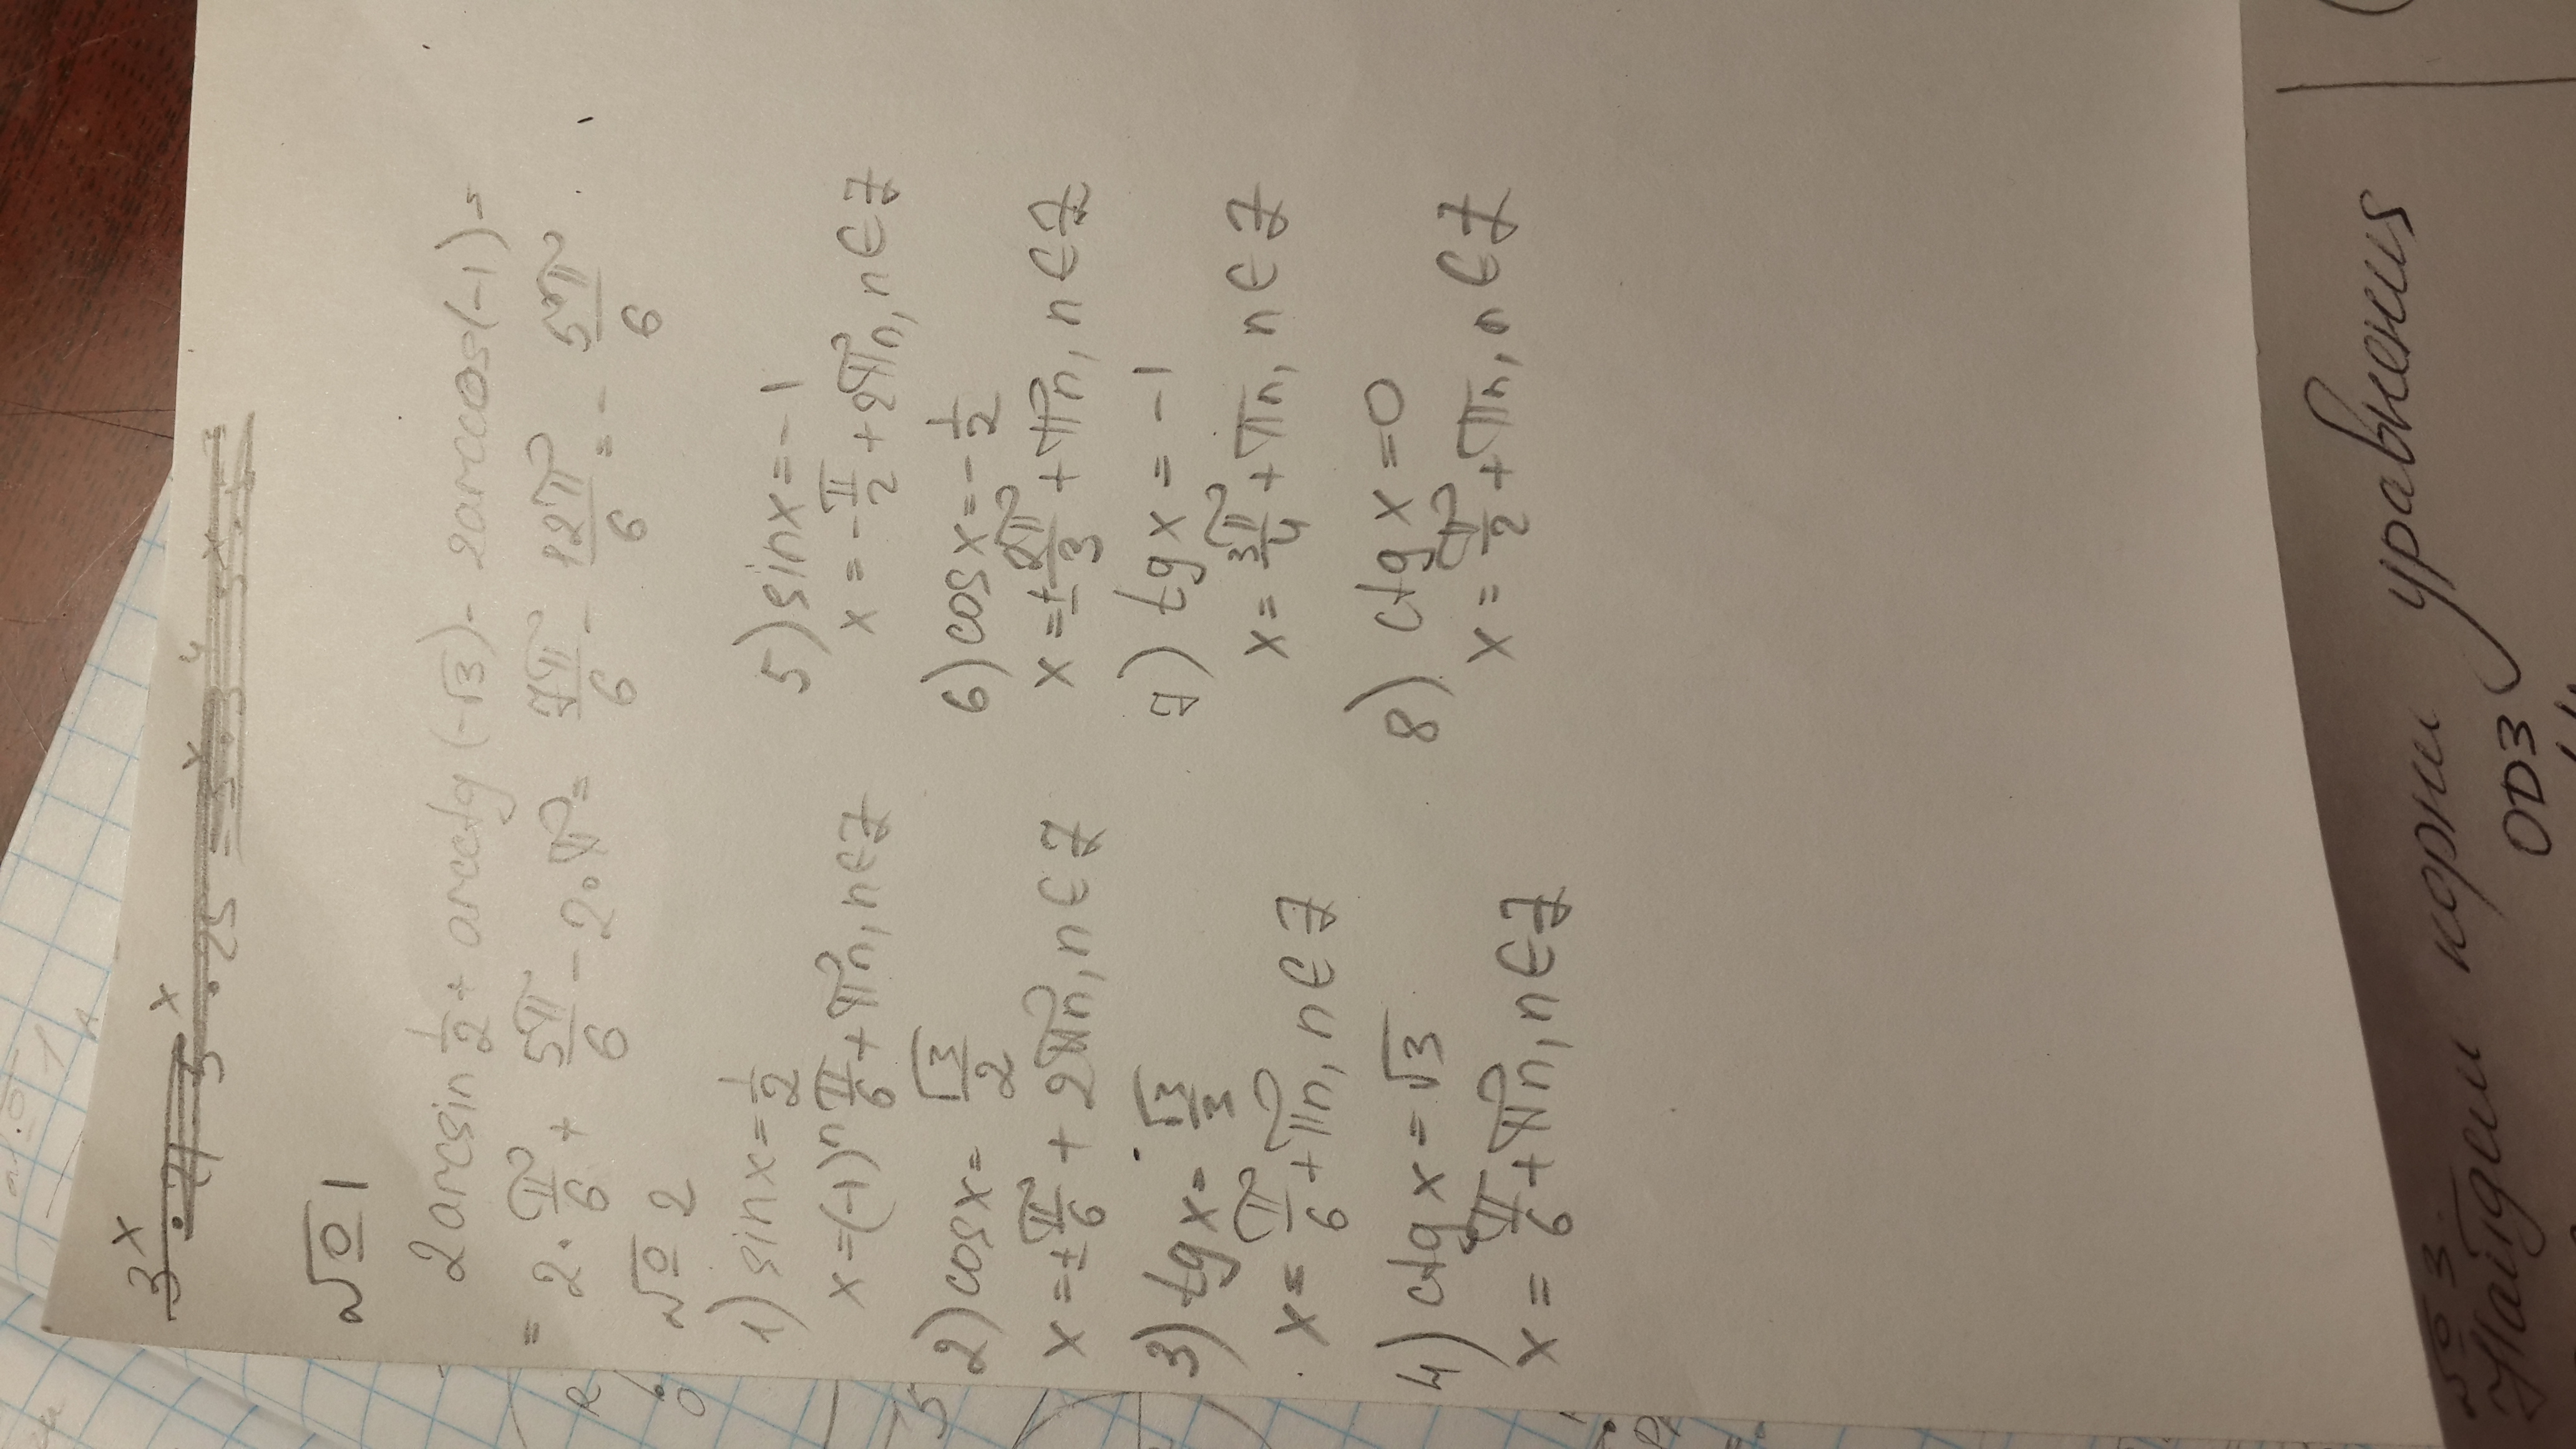 3ˣ · 7
3ˣ · 25 = 5ˣ · 3⁴
№ 1
2 arcsin 1/2 + arcctg (-√3) - 2 arccos (-1) =
= 2 · π/6 + 5π/6 - 2 · π = 7π/6 - 12π/6 = - 5π/6 .
№ 2
1) sin x = 1/2
x = (-1)ⁿ π/6 + πn, n ∈ Z
2) cos x = √3/2
x = ± π/6 + 2πn, n ∈ Z
3) tg x = √3/3
x = π/6 + πn, n ∈ Z
4) ctg x = √3
x = π/6 + πn, n ∈ Z
5) sin x = -1
x = - π/2 + 2πn, n ∈ Z
6) cos x = - 1/2
x = ± 2π/3 + πn, n ∈ Z
7) tg x = -1
x = 3π/4 + πn, n ∈ Z
8) ctg x = 0
x = π/2 + πn, n ∈ Z
№ 3
Найдем корни уравнения
ОДЗ